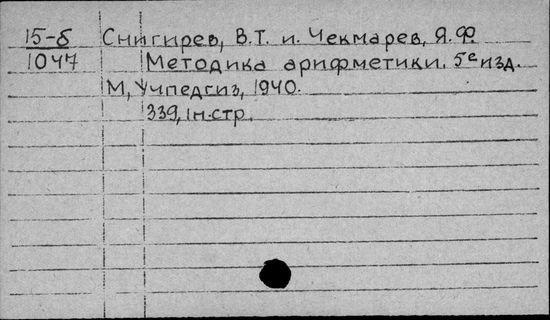 15-б Снигирев, В.Т. и. Чекмарев, Я.Ф.
1047 Методика арифметики. 5е изд.
М, Учпедгиз, 1940.
339, 1н.стр.